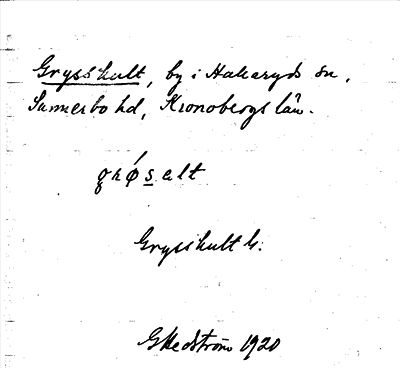 Grysshult, by i Hallaryds sn,
Sunnerbo hd, Kronobergs län.
grǿs̲ alt
Grysshult h.
GHedström 1920